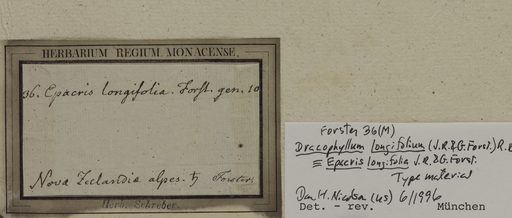 HERBARIUM REGIUM MONACENSE.
36. Epacris longifolia. Forst. gen. 10
Nova Zeelandia alpes. ♄ Forster.
Herb. Schreber.
Forster 36(M)
Dracophyllum longifolium (J.R.&G.Forst.) R.B
≡ Epacris longifolia J.R.&G.Forst.
Type material
Dan H. Nicolson (US) 6/1996
Det. - rev. München